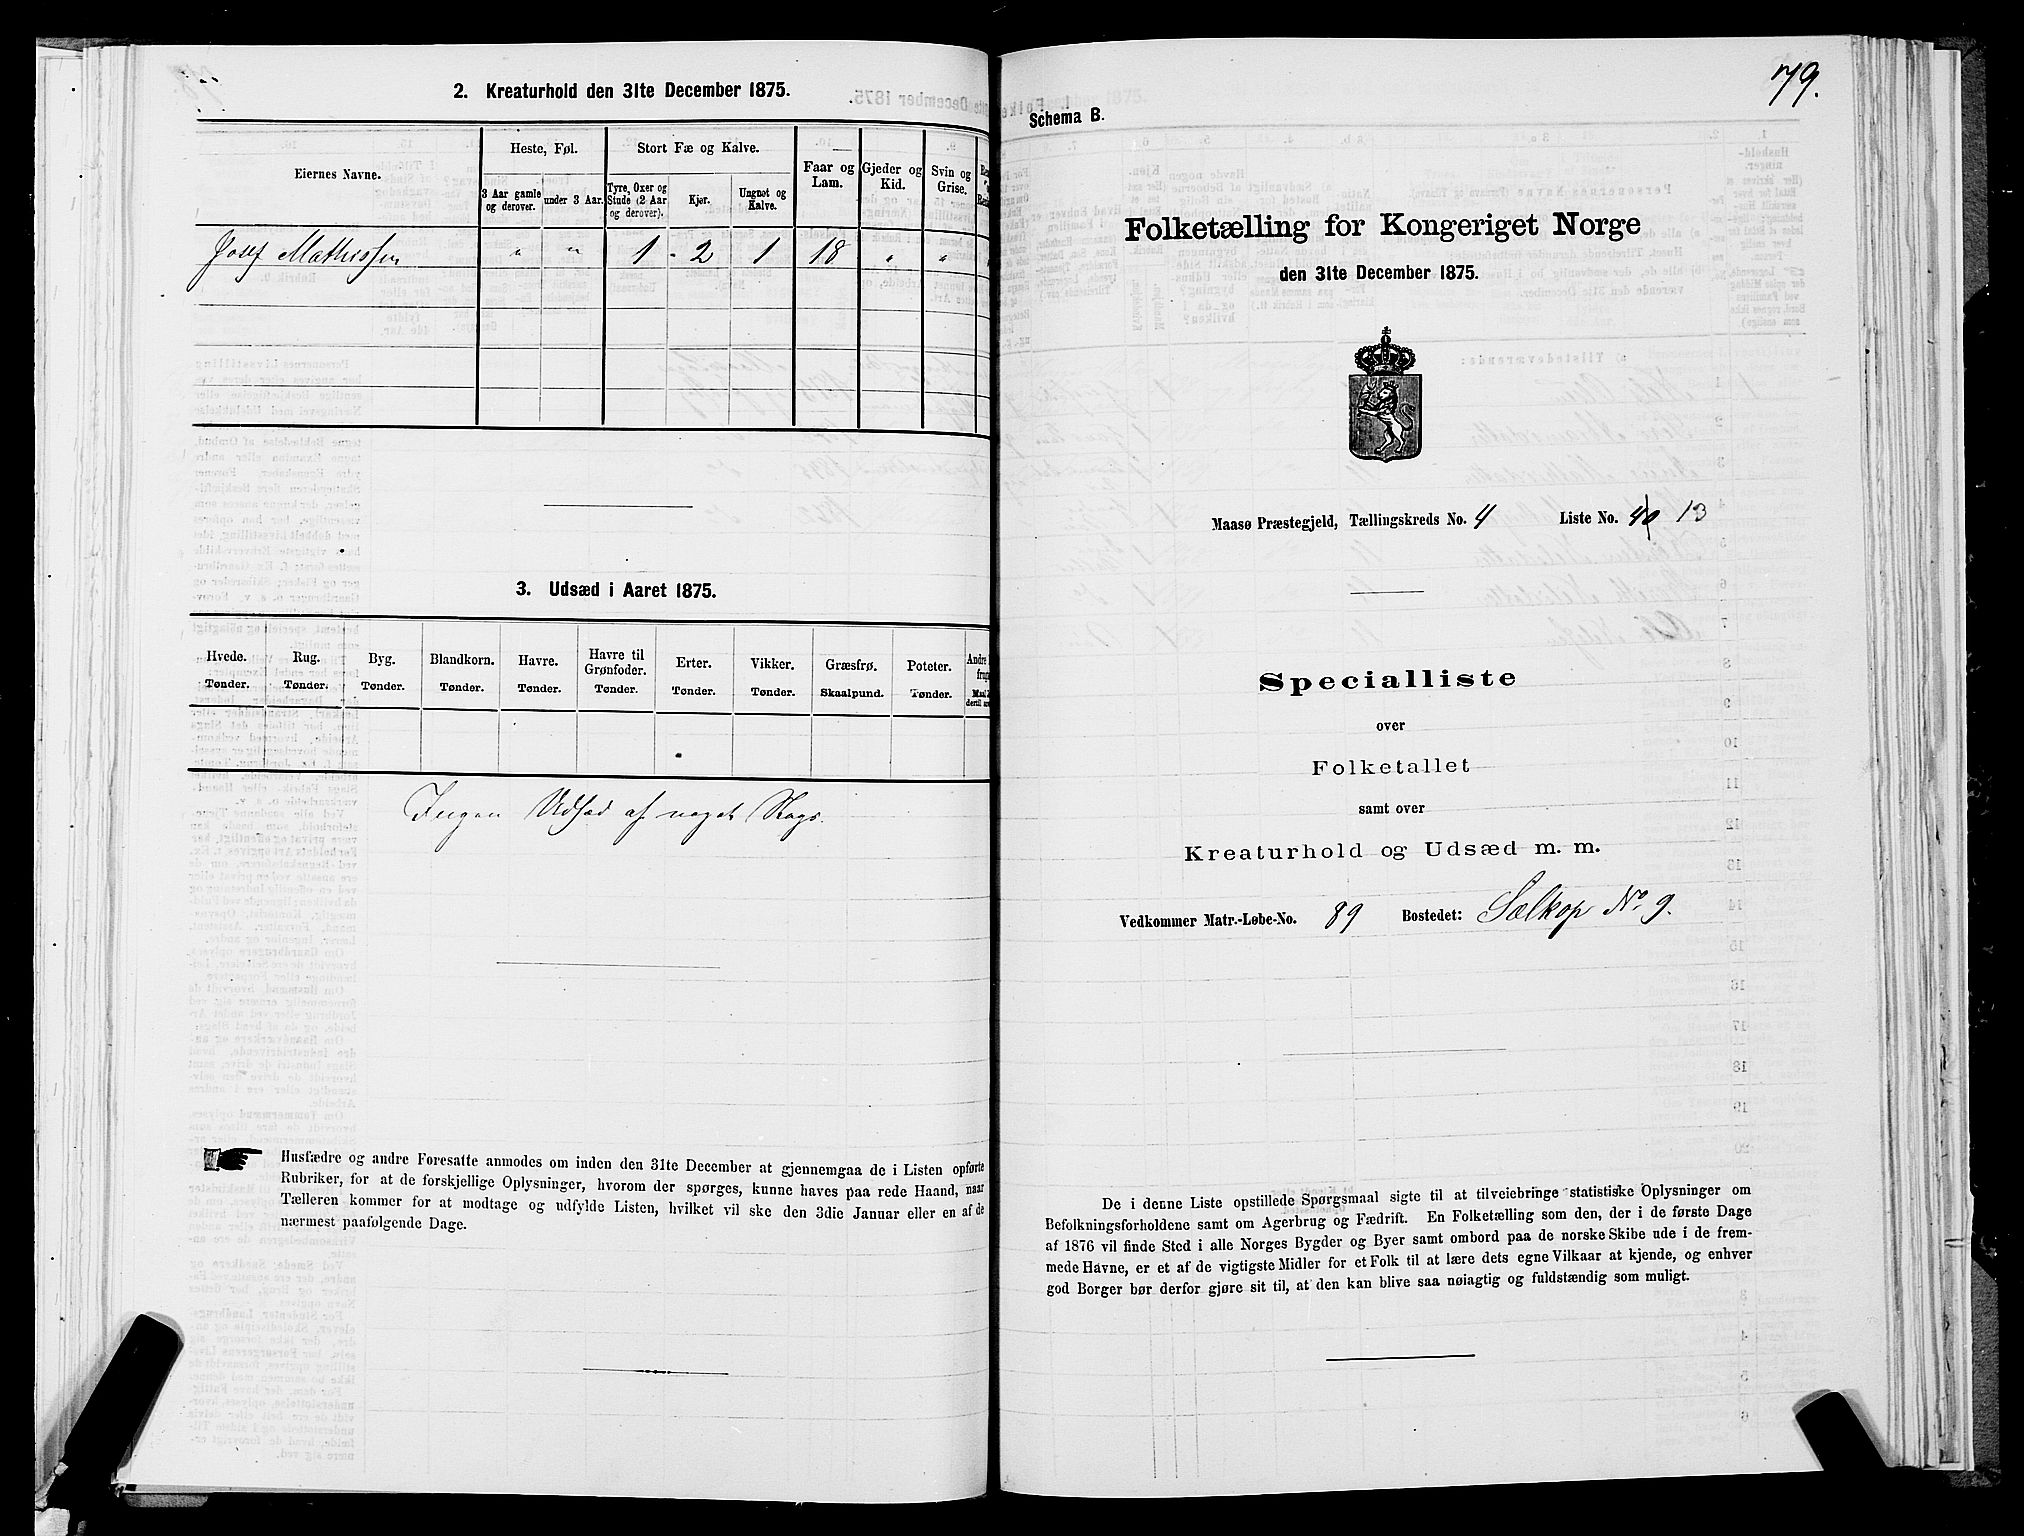 2. Kreaturhold den 31te December 1875.
Eiernes Navne.
Heste, Føl.
Stort Fæ og Kalve.
Faar og Lam.
Gjeder og Kid.
Svin og Grise.
3 Aar gamle og derover.
under 3 Aar.
Tyre, Oxer og Stude (2 Aar og derover).
Kjør.
Ungnøt og Kalve.
Josef Mathissen " " 1 - 2 1 18 " "
3. Udsæd i Aaret 1875.
Hvede. Rug. Byg. Blandkorn. Havre. Havre til Grønfoder. Erter. Vikker. Græsfrø. Poteter.
Tønder. Tønder. Tønder. Tønder. Tønder. Tønder. Tønder. Tønder. Skaalpund. Tønder.
Ingen Udsæd af noget Slags.
Husfædre og andre Foresatte anmodes om inden den 31te December at gjennemgaa de i Listen opførte
Rubriker, for at de forskjellige Oplysninger, hvorom der spørges, kunne haves paa rede Haand, naar
Tælleren kommer for at modtage og udfylde Listen, hvilket vil ske den 3die Januar eller en af de
nærmest paafølgende Dage.
79.
Schema B.
Folketælling for Kongeriget Norge
den 31te December 1875.
Maasø Præstegjeld, Tællingskreds No. 4 Liste No. 13
Specialliste
over
Folketallet
samt over
Kreaturhold og Udsæd m. m.
Vedkommer Matr.-Løbe-No. 89 Bostedet: Sælkop No. 9.
De i denne Liste opstillede Spørgsmaal sigte til at tilveiebringe statistiske Oplysninger om
Befolkningsforholdene samt om Agerbrug og Fædrift. En Folketælling som den, der i de første Dage
af 1876 vil finde Sted i alle Norges Bygder og Byer samt ombord paa de norske Skibe ude i de frem-
mede Havne, er et af de vigtigste Midler for et Folk til at lære dets egne Vilkaar at kjende, og enhver
god Borger bør derfor gjøre sit til, at den kan blive saa nøiagtig og fuldstændig som muligt.